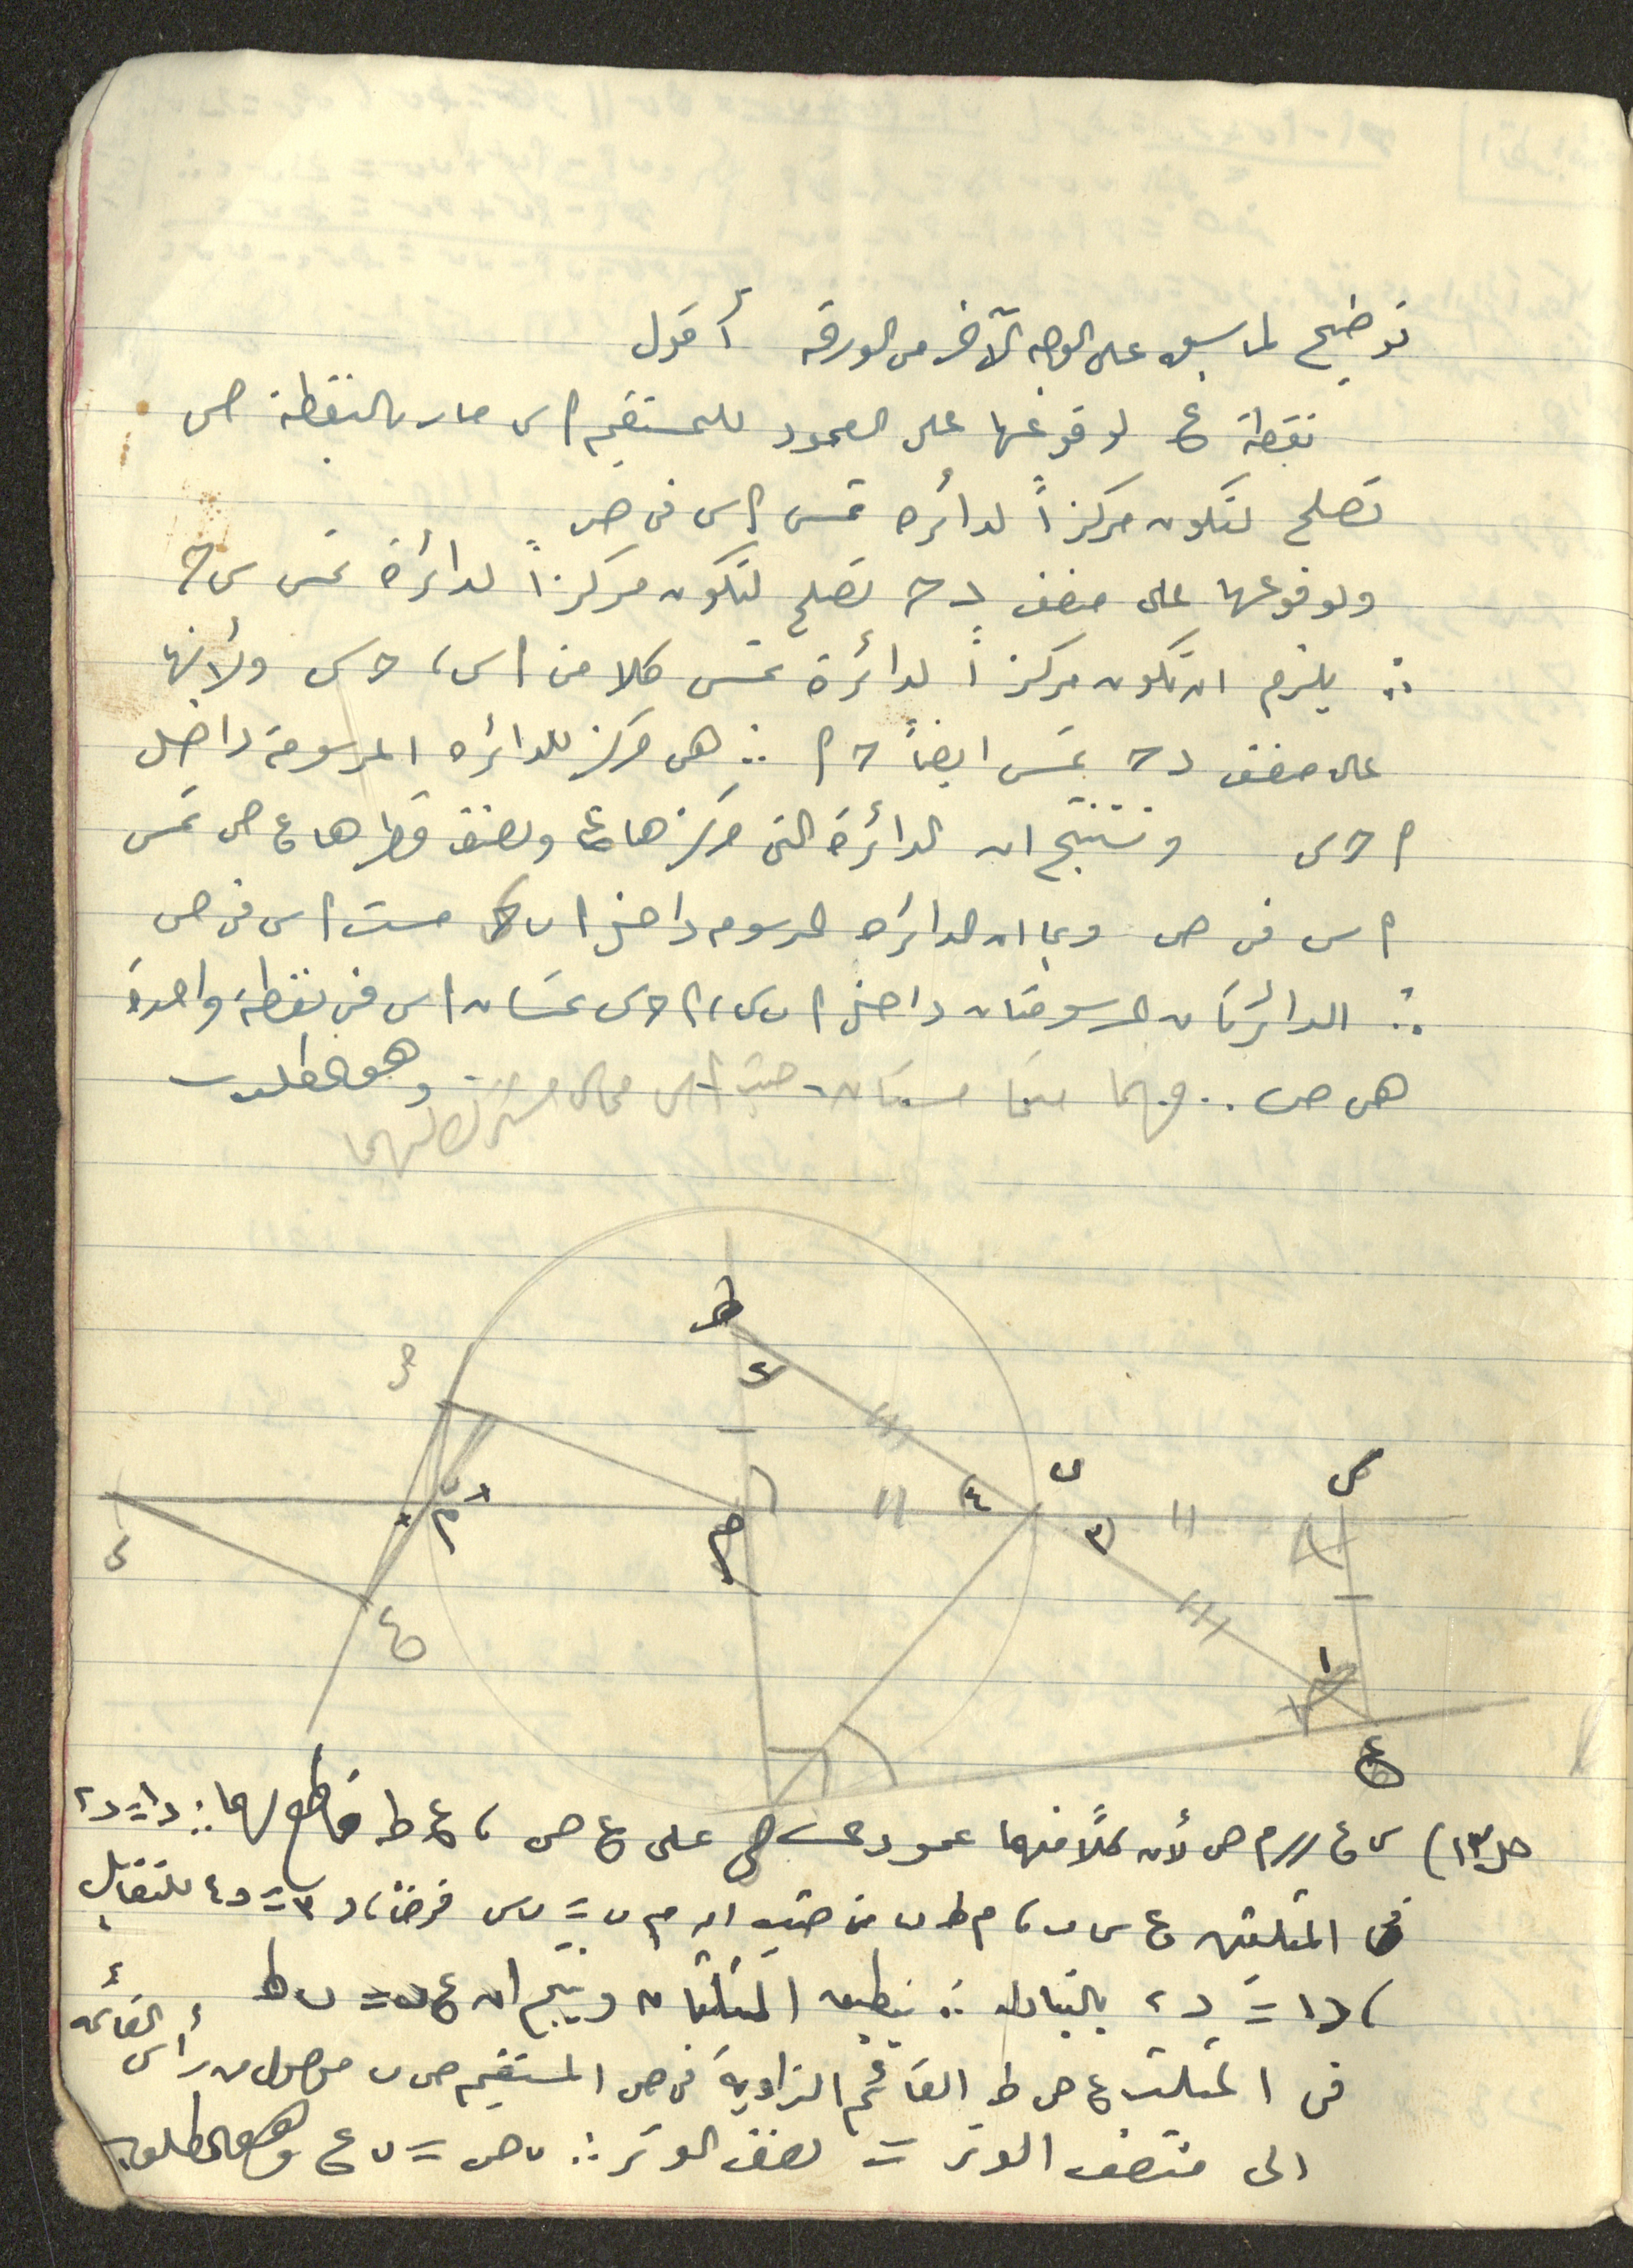 توضيح لما سبق على الوجه الآخر من الورقة أقول
نقطة ع لوقوعها على العمود للمستقيم اس مار بالنقطة ص
تصلح لتكون مركزاً لدائرة تمس اس فى ص
ولوقوعها على منصف د ح تصلح لتكون مركزاً لدائرة تمس س ح
∴ يلزم ان تكون مركزاً لدائرة تمس كلا من اس، ح س ولأنها
على منصف د ح تمس ايضاً ح ا ∴ هى مركز للدائره المرسومة داخل
ا ح س ونستنتج ان الدائرة التى مركزها ع ونصف قطرها ع ص تمس
اس فى ص وبما ان الدائره المرسوم داخل ا ب س مست اس فى ص
∴ الدائرتان المرسومتان داخل ا ب س، ا ح س تمسان اس فى نقطة واحدة
هى ص ∴ فهما متماستان حيث اس مماس مشترك لهما وهو المطلوب
ط
٢
ص
س
ن
م
م
٤
٣
س
ع
١
ع
حل ١٣) س ع // م ص لأن كلاً منهما عمود على ع ص، ع ط قاطع لهما ∴ د١ = د٢
فى المثلثين ع س ن، م ط ن من حيث ان م ن = ن س فرضاً، د٣ = د٤ للتقابل
، د١ = د٢ بالتبادل ∴ ينطبق المثلثان وينتج ان ع ن = ن ط
فى المثلث ع ص ط القائم الزاوية فى ص المستقيم ص ن موصل من رأس القائمه
الى منتصف الوتر = نصف الوتر ∴ ن ص = ن ع وهو المطلوب